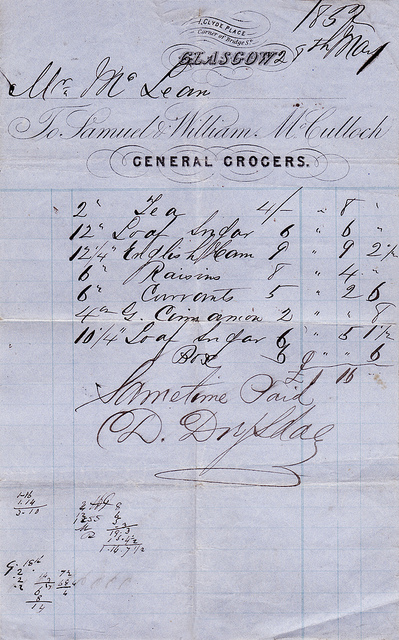 1, CLYDE PLACE
Corner of Bridge St.
1852
GLASGOW 28th May
Mr. Mc Lean
To Samuel & William McCulloch
GENERAL GROCERS.
2 " Tea 4/- " 8 "
12 " Loaf Sugar 6 " 6 "
12 1/4 " English Ham 9 " 9 2 1/2
6 " Raisins 8 " 4 "
6 " Currants 5 " 2 6
4 G. Cinnamon 2 " " 8
10 1/4 " Loaf Sugar 6 " 5 1 1/2
Box 6 " " 6
£ 16
Sametime Paid
D. Drysdale